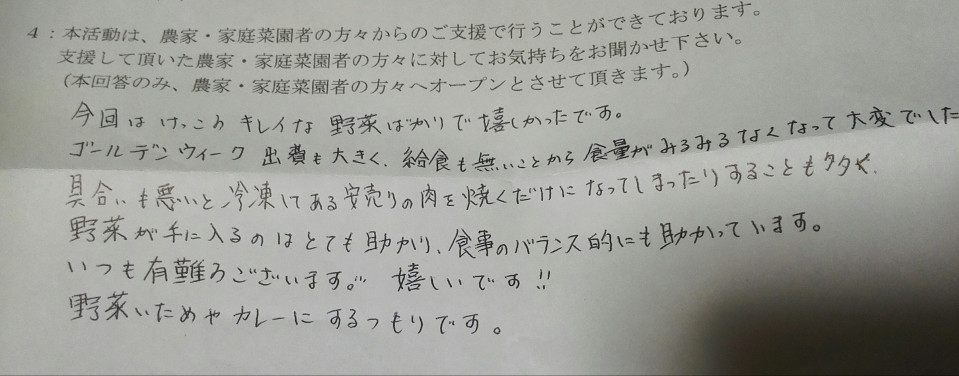 4：本活動は、農家・家庭菜園者の方々からのご支援で行うことができております。
支援して頂いた農家・家庭菜園者の方々に対してお気持ちをお聞かせ下さい。
(本回答のみ、農家・家庭菜園者の方々へオープンとさせて頂きます。)
今回はけっこうキレイな野菜ばかりで嬉しかったです。
ゴールデンウィーク出費も大きく、給食も無いことから食量がみるみるなくなって大変でした
具合いも悪いと冷凍してある安売りの肉を焼くだけになってしまったりすることも多々。
野菜が手に入るのはとても助かり、食事のバランス的にも助かっています。
いつも有難うございます。嬉しいです!!
野菜いためやカレーにするつもりです。